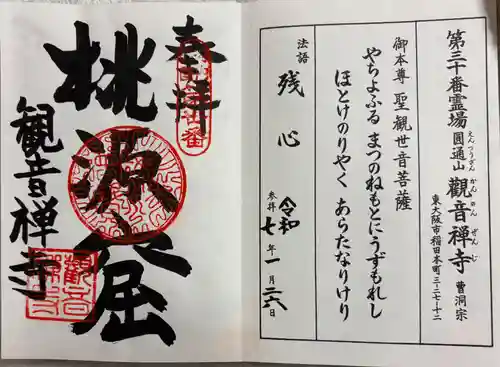 第三十番霊場
圓通山 觀音禅寺 曹洞宗
えんつうざん かんのんぜんじ
東大阪市稲田本町三-二七-十二
御本尊 聖觀世音菩薩
やちよふる まつのねもとにうずもれし
ほとけのりやく あらたなりけり
法語 残心
参拝 令和七年一月二六日
奉拝
桃源窟
観音禅寺